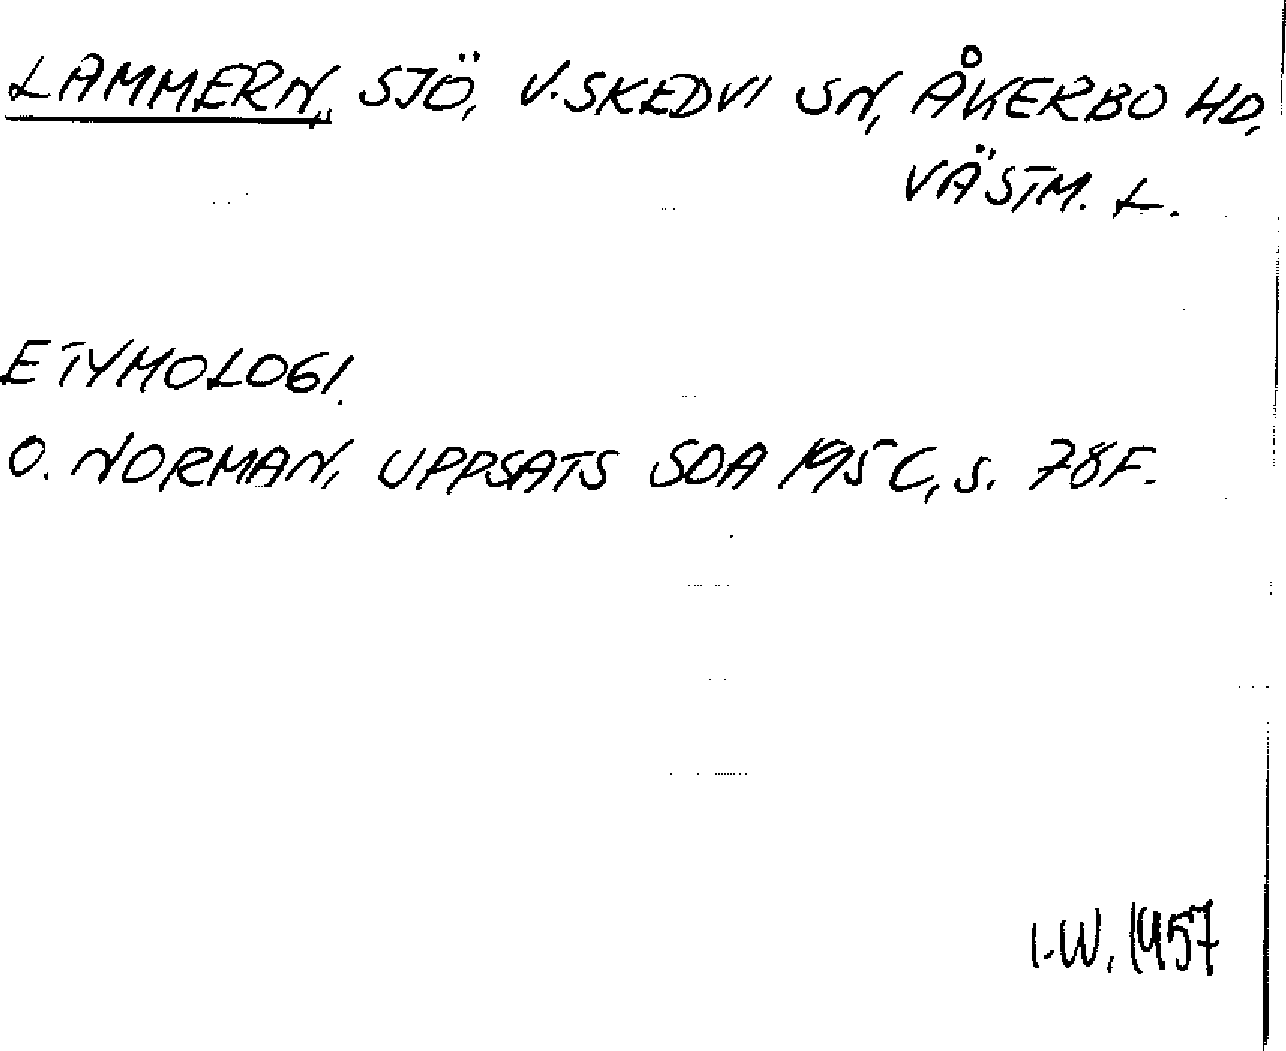 LAMMERN, SJÖ, V. SKEDVI SN, ÅKERBO HD,
VÄSTM. L.
ETYMOLOGI.
O. NORMAN, UPPSATS SOA 195 C, S. 78F.
I.W. 1957